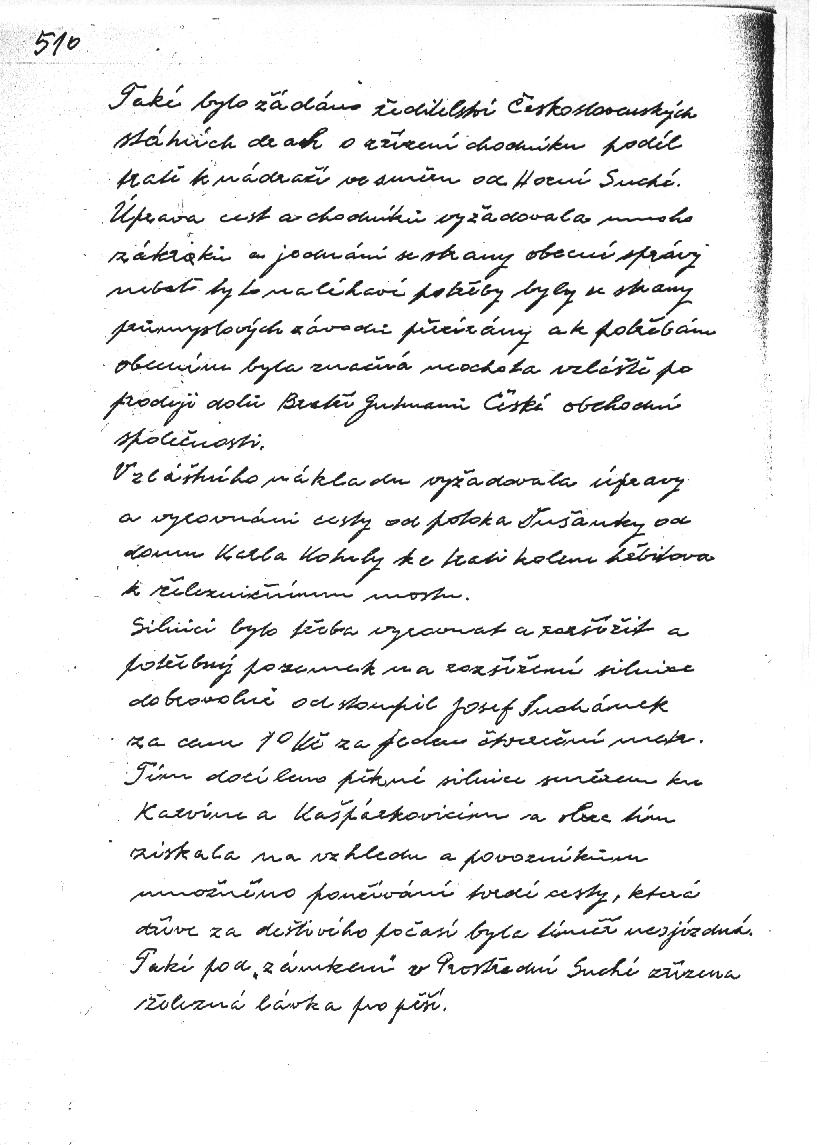 510
Také bylo žádáno ředitelství Československých
státních drah o zřízení chodníku podél
tratě k nádraží ve směru od Horní Suché.
Úprava cest a chodníků vyžadovala mnoho
zákroků a jednání se strany obecní správy
neboť tyto naléhavé potřeby byly se strany
průmyslových závodů přezírány a k potřebám
obecním byla značná neochota vzláště po
prodeji dolů Bratří Gutmanů České obchodní
společnosti.
Vzláštního nákladu vyžadovala úpravy
a vyrovnání cesty od potoka Sušanky od
domu Karla Kohuly ke trati kolem hřbitova
k železničnímu mostu.
Silnici bylo třeba vyrovnat a rozšířit a
potřebný pozemek na rozšíření silnice
dobrovolně odstoupil Josef Suchánek
za cenu 10 Kč za jeden čtvereční metr.
Tím docíleno pěkné silnice směrem ku
Karvine a Kašpárkovicím a obec tím
získala na vzhledu a povozníkům
umožněno používání tvrdé cesty, která
dříve za deštivého počasí byla téměř nesjízdná.
Také pod „zámkem" v Prostřední Suché zřízena
železná lávka pro pěší.